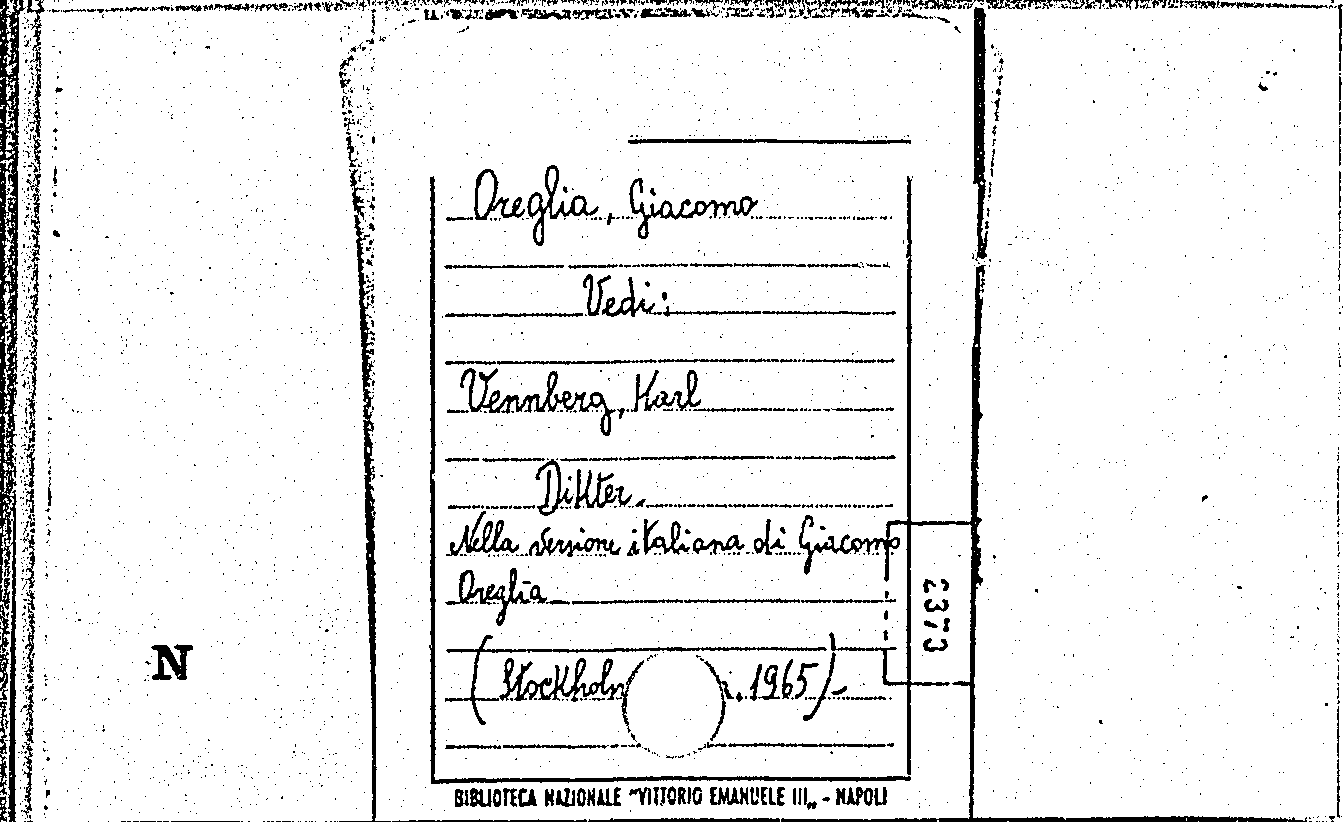 Oreglia, Giacomo
Vedi:
Vennberg, Karl
Dikter.
Nella versione italiana di Giacomo
Oreglia
(Stockholm 1965)
2373
N
BIBLIOTECA NAZIONALE "VITTORIO EMANUELE III„ - NAPOLI